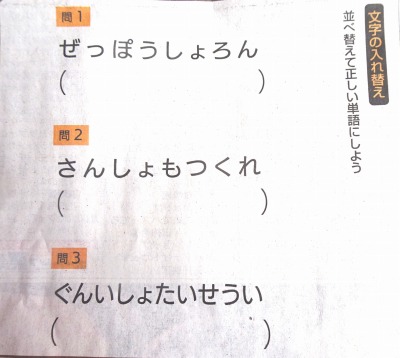 文字の入れ替え
並べ替えて正しい単語にしよう
問1
ぜっぽうしょろん
(　　　　　　)
問2
さんしょもつくれ
(　　　　　　)
問3
ぐんいしょたいせうい
(　　　　　　)